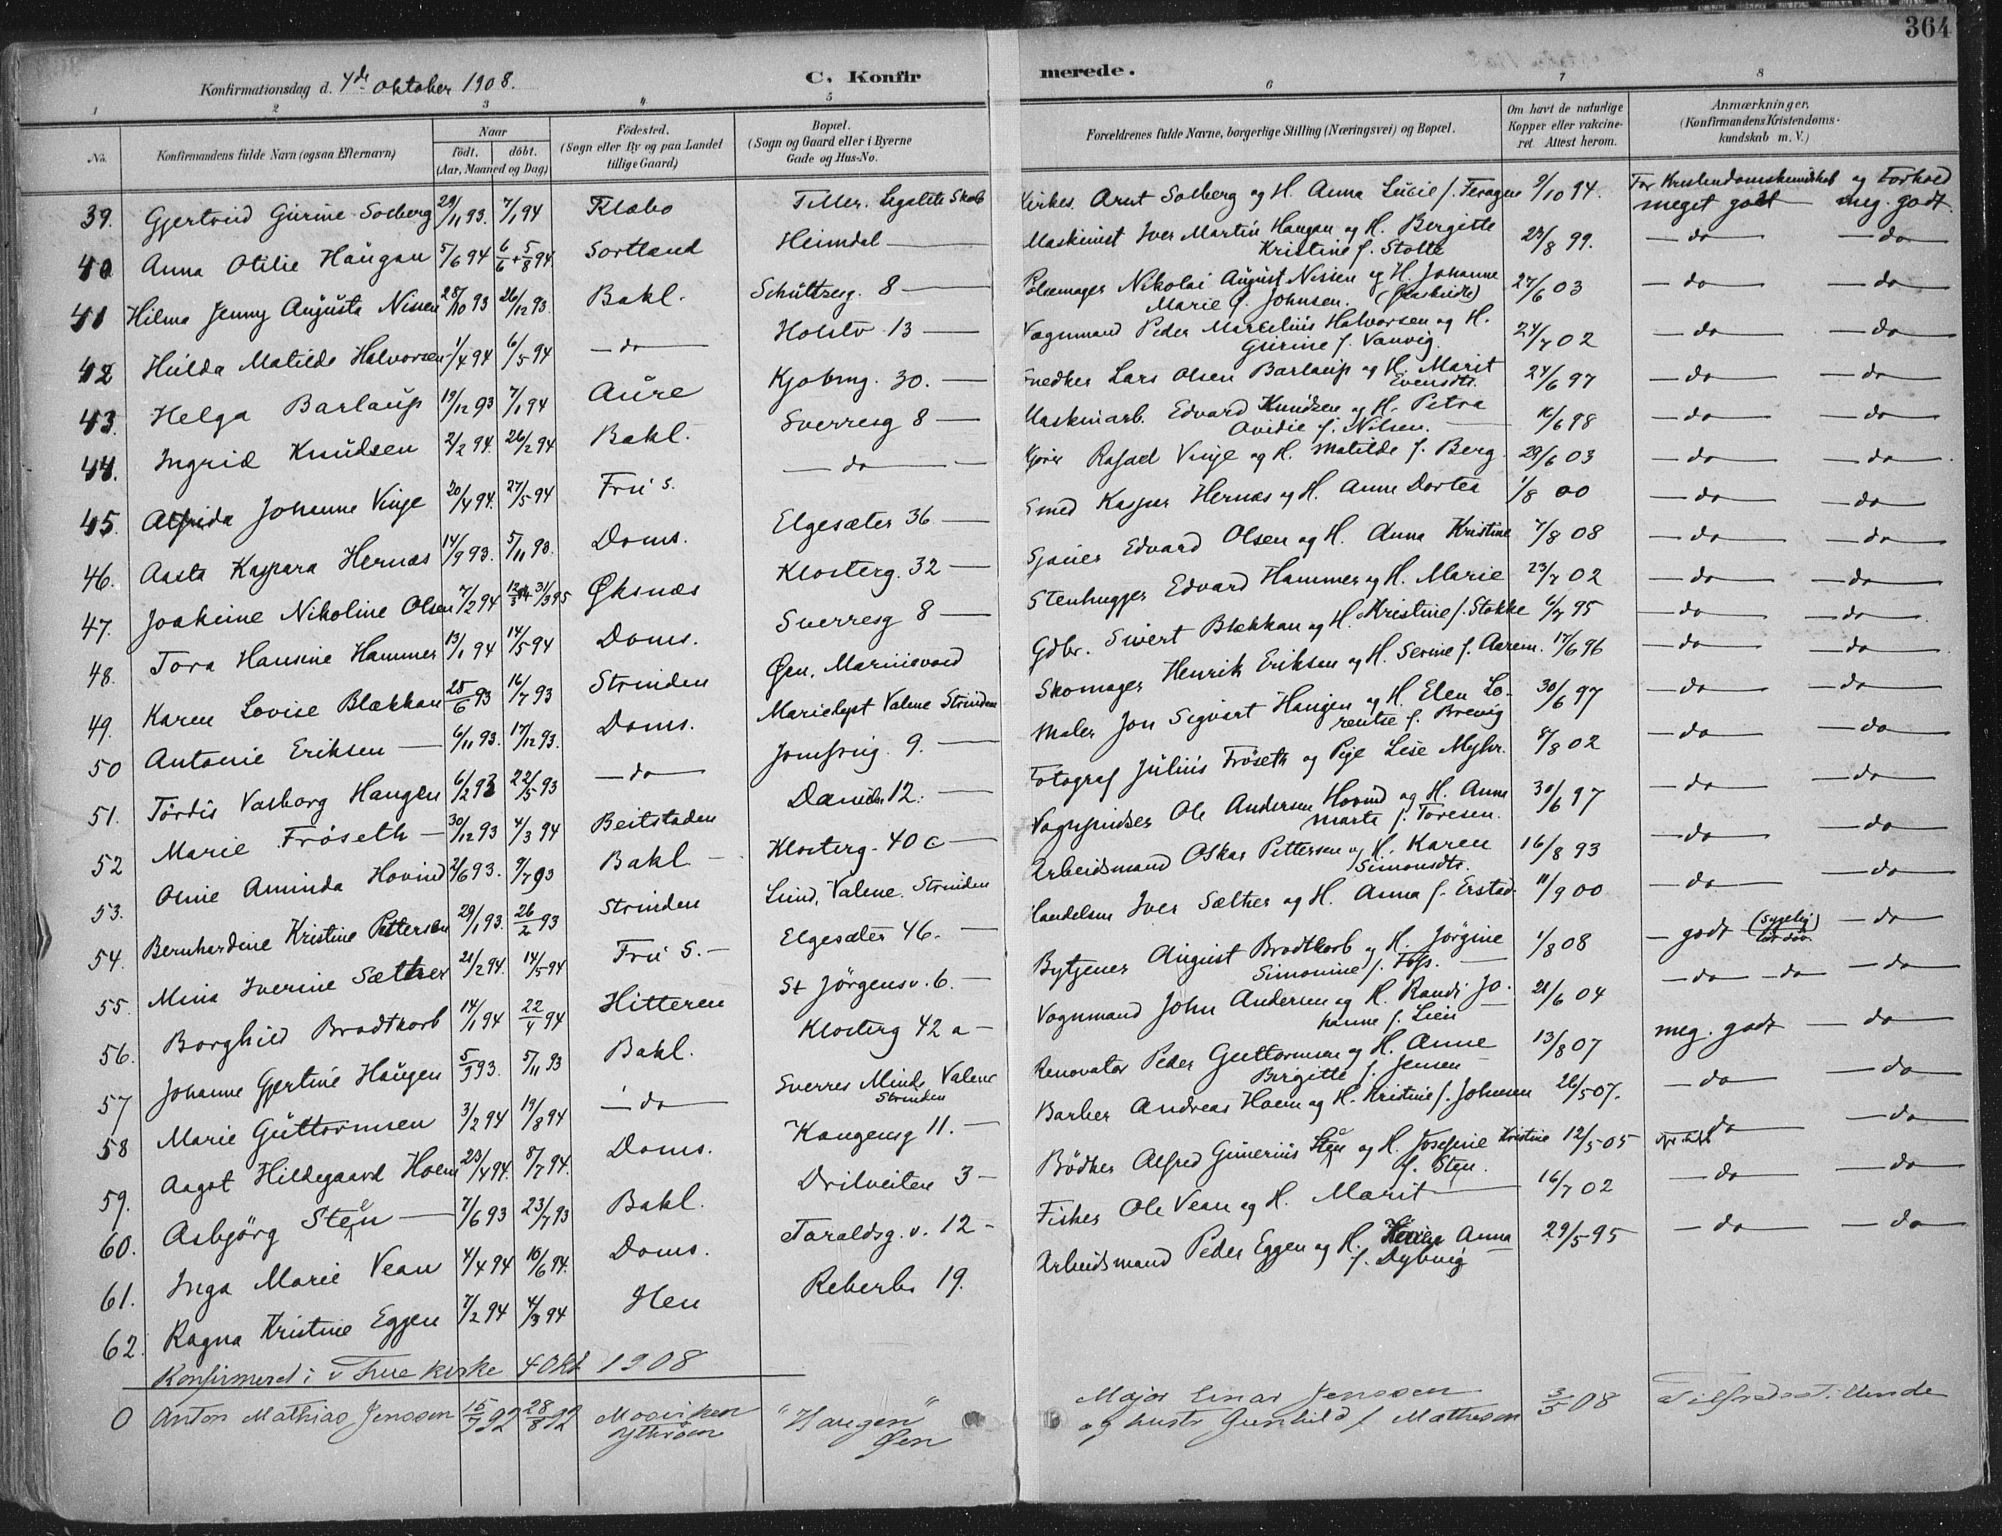 364
Konfirmationsdag d. 4de Oktober 1908.
C. Konfirmerede.
1 2 3 4 5 6 7 8
No.
Konfirmandens fulde Navn (ogsaa Efternavn)
Naar
født. døbt.
(Aar, Maaned og Dag)
Fødested.
(Sogn eller By og paa Landet
tillige Gaard)
Bopæl.
(Sogn og Gaard eller i Byerne
Gade og Hus-No.
Forældrenes fulde Navne, borgerlige Stilling (Næringsvei) og Bopæl.
Om havt de naturlige
Kopper eller vakcine-
ret. Attest herom.
Anmærkninger.
(Konfirmandens Kristendoms-
kundskab m. V.)
39. Gjertrud Gurine Solberg 29/11 93. 7/1 94 Klæbo Tiller. Kirkes. Arnt Solberg og H. Anna Lucie f. Feragen 9/10 94. For Kristendomskundskab og Forhold
meget godt meg. godt.
40 Anna Otilie Haugan 5/6 94 6/6 + 5/8 94 Sortland Heimdal Maskinist Iver Martin Haugan og H. Bergitte
Kristine f. Stolte 24/8 99. do do
41 Hilma Jenny Augusta Nissen 28/10 93 26/12 93. Bakl. Schultzesg. 8 Pølsemager Nikolai August Nissen og H. Johanne
Marie f. Johnsen. 27/6 03 do do
42 Hulda Matilde Halvorsen 1/4 94 6/5 94 do Holstv 13 Vognmand Peder Marcelius Halvorsen og H.
Gurine f. Vanvig. 24/7 02 do do
43. Helga Barlaup 19/12 93 7/1 94 Aure Kjøbmg. 30. Snedker Lars Olsen Barlaup og H. Marit
Evensdt. 24/6 97 do do
44. Ingrid Knudsen 2/2 94. 26/2 94 Bakl. Sverresg 8 Maskinarb. Edvard Knudsen og H. Petra
Ovidie f. Nilsen. 16/6 98 do do
45. Alfrida Johanne Vinje 20/4 94. 27/5 94 Frue S. do Kjører Rafael Vinje og H. Matilde f. Berg. 29/6 03 do do
46. Aasta Kaspara Hernæs 14/9 93. 5/11 93. Doms. Elgesæter 36 Smed Kaspar Hernæs og H. Anne Dortea 1/8 00 do do
47. Joakime Nikoline Olsen 7/2 94 31/3 95 Øksnæs Klosterg. 32 Sjauer Edvard Olsen og H. Anna Kristine 7/8 08 do do
48. Tora Hansine Hammer 13/1 94 14/5 94 Doms. Sverresg 8 Stenhugger Edvard Hammer og H. Marie 23/7 02 do do
49. Karen Lovise Blækkan 25/6 93 16/7 93 Strinden Øen, Marinevold Gdbr. Sivert Blækkan og H. Kristine f. Stokke 6/7 95 do do
50 Antonie Eriksen 6/11 93. 17/12 93. Doms. Marielyst Valene Strinden Skomager Henrik Eriksen og H. Serine f. Aarem. 17/6 96 do do
51. Tordis Valborg Haugen 6/2 93 22/5 93 do Jomfrug. 9. Maler Jon Sigvart Haugen og H. Elen Lo-
rentse f. Brevig 30/6 97 do do
52 Marie Frøseth 30/12 93 4/3 94 Beitstaden 12. Fotograf Julius Frøseth og Pige Lise Myhr. 8/8 02 do do
53. Oline Aminda Hovind 2/6 93. 9/7 93 Bakl Klosterg. 40 c Vognpudser Ole Andersen Hovind og H. Anne
Marta f. Toresen. 30/6 97 do do
54. Bernhardine Kristine Pettersen 29/1 93. 26/2 93 Strinden Lund, Valene. Strinden Arbeidsmand Oskar Pettersen og H. Karen
Simonsdt. 16/8 93 do do
55. Mina Iverine Sæther 21/2 94. 14/5 94 Frue S. Elgesæter 46. Handelsm Iver Sæther og H. Anna f. Erstad. 11/9 00 do do
56. Borghild Brodtkorb 14/1 94 22/4 94 Hitteren St Jørgensv. 6. Bytjener August Brodtkorb og H. Jørgine
Simonine f. 1/8 08 godt (sygelig) do
57 Johanne Gjertine Haugen 5/9 93. 5/11 93 Bakl. Klosterg 42 a Vognmand John Andersen og H. Randi Jo-
hanne f. Lien 21/6 04 do do do
58 Marie Guttormsen 3/2 94 19/8 94 do Sverres Minde, Valene
Strinden Renovatør Peder Guttormsen og H. Anne
Birgitte f. Jensen 13/8 07 meg. godt do
59. Aagot Hildegaard Hoem 23/4 94. 8/7 94. Doms. Kongensg 11. Barber Andreas Hoem og H. Kristine f. Johnsen 26/5 07. do do
60. Asbjørg Steen 7/6 93 23/7 93 Bakl. Drilveiten 3 Bødker Alfred Gunerius Steen og H. Josefine Kristine
f. Sten. 12/5 05 do do
61. Inga Marie Vean 4/4 94 10/6 94. Doms. Taraldsg. v. 12 Fisker Ole Vean og H. Marit 16/7 02 do do
62. Ragna Kristine Eggen 7/2 94 4/3 94 Hen Reberb. 19. Arbeidsmand Peder Eggen og H. Anna
f. Dybvig 29/5 95 do do
Konfirmeret i v Frue kirke 4 Okt 1908
0 Anton Mathias Jenssen 15/7 92 28/8 92 "Haugen"
Øen Major Einar Jenssen
og hustr Gunhild f Matheson 3/5 08 Tilfredsstillende